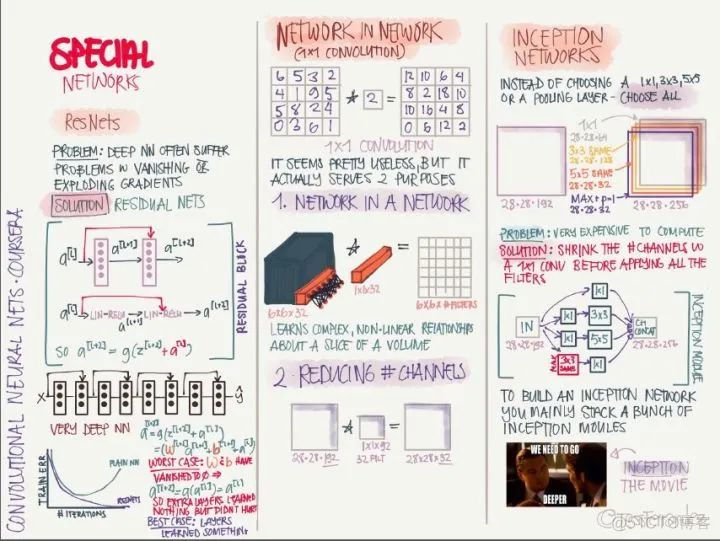 CONVOLUTIONAL NEURAL NETS · COURSERA
SPECIAL
NETWORKS
ResNets
PROBLEM: DEEP NN OFTEN SUFFER
PROBLEMS W VANISHING OR
EXPLODING GRADIENTS
SOLUTION RESIDUAL NETS
a[l] a[l+1] a[l+2]
a[l] LIN-RELU LIN-RELU a[l+2]
a[l+1]
SO a[l+2] = g(z[l+2] + a[l])
RESIDUAL BLOCK
X ŷ
VERY DEEP NN
TRAIN ERR
PLAIN NN
RESNETS
# ITERATIONS
a[l+2] = g(z[l+2] + a[l])
= (W[l+2] a[l+1] + b[l+2] + a[l])
WORST CASE: W & b HAVE
VANISHED TO 0 ⇒
a[l+2] = g(a[l]) = a[l]
SO EXTRA LAYERS LEARNED
NOTHING BUT DIDN'T HURT
BEST CASE: LAYERS
LEARNED SOMETHING
NETWORK IN NETWORK
(1×1 CONVOLUTION)
6 5 3 2
4 1 9 5
5 8 2 4
0 3 6 1
* 2 =
12 10 6 4
8 2 18 10
10 16 4 8
0 6 12 2
1×1 CONVOLUTION
IT SEEMS PRETTY USELESS, BUT IT
ACTUALLY SERVES 2 PURPOSES
1. NETWORK IN A NETWORK
* =
6×6×32
1×1×32
6×6× #FILTERS
LEARNS COMPLEX, NON-LINEAR RELATIONSHIPS
ABOUT A SLICE OF A VOLUME
2. REDUCING # CHANNELS
* =
28·28·192
1×1×192
32 FILT
28×28×32
INCEPTION
NETWORKS
INSTEAD OF CHOOSING A 1×1, 3×3, 5×5
OR A POOLING LAYER - CHOOSE ALL
28·28·192
1×1
28·28·64
3×3 SAME
28·28·128
5×5 SAME
28·28·32
MAX+P=1
28·28·32
28·28·256
PROBLEM: VERY EXPENSIVE TO COMPUTE
SOLUTION: SHRINK THE #CHANNELS W
A 1×1 CONV BEFORE APPLYING ALL THE
FILTERS
IN
28·28·192
1×1
1×1 3×3
1×1 5×5
MAX 3×3 SAME 1×1
CH CONCAT
28·28·256
INCEPTION MODULE
TO BUILD AN INCEPTION NETWORK
YOU MAINLY STACK A BUNCH OF
INCEPTION MOULES
WE NEED TO GO
DEEPER
INCEPTION
THE MOVIE